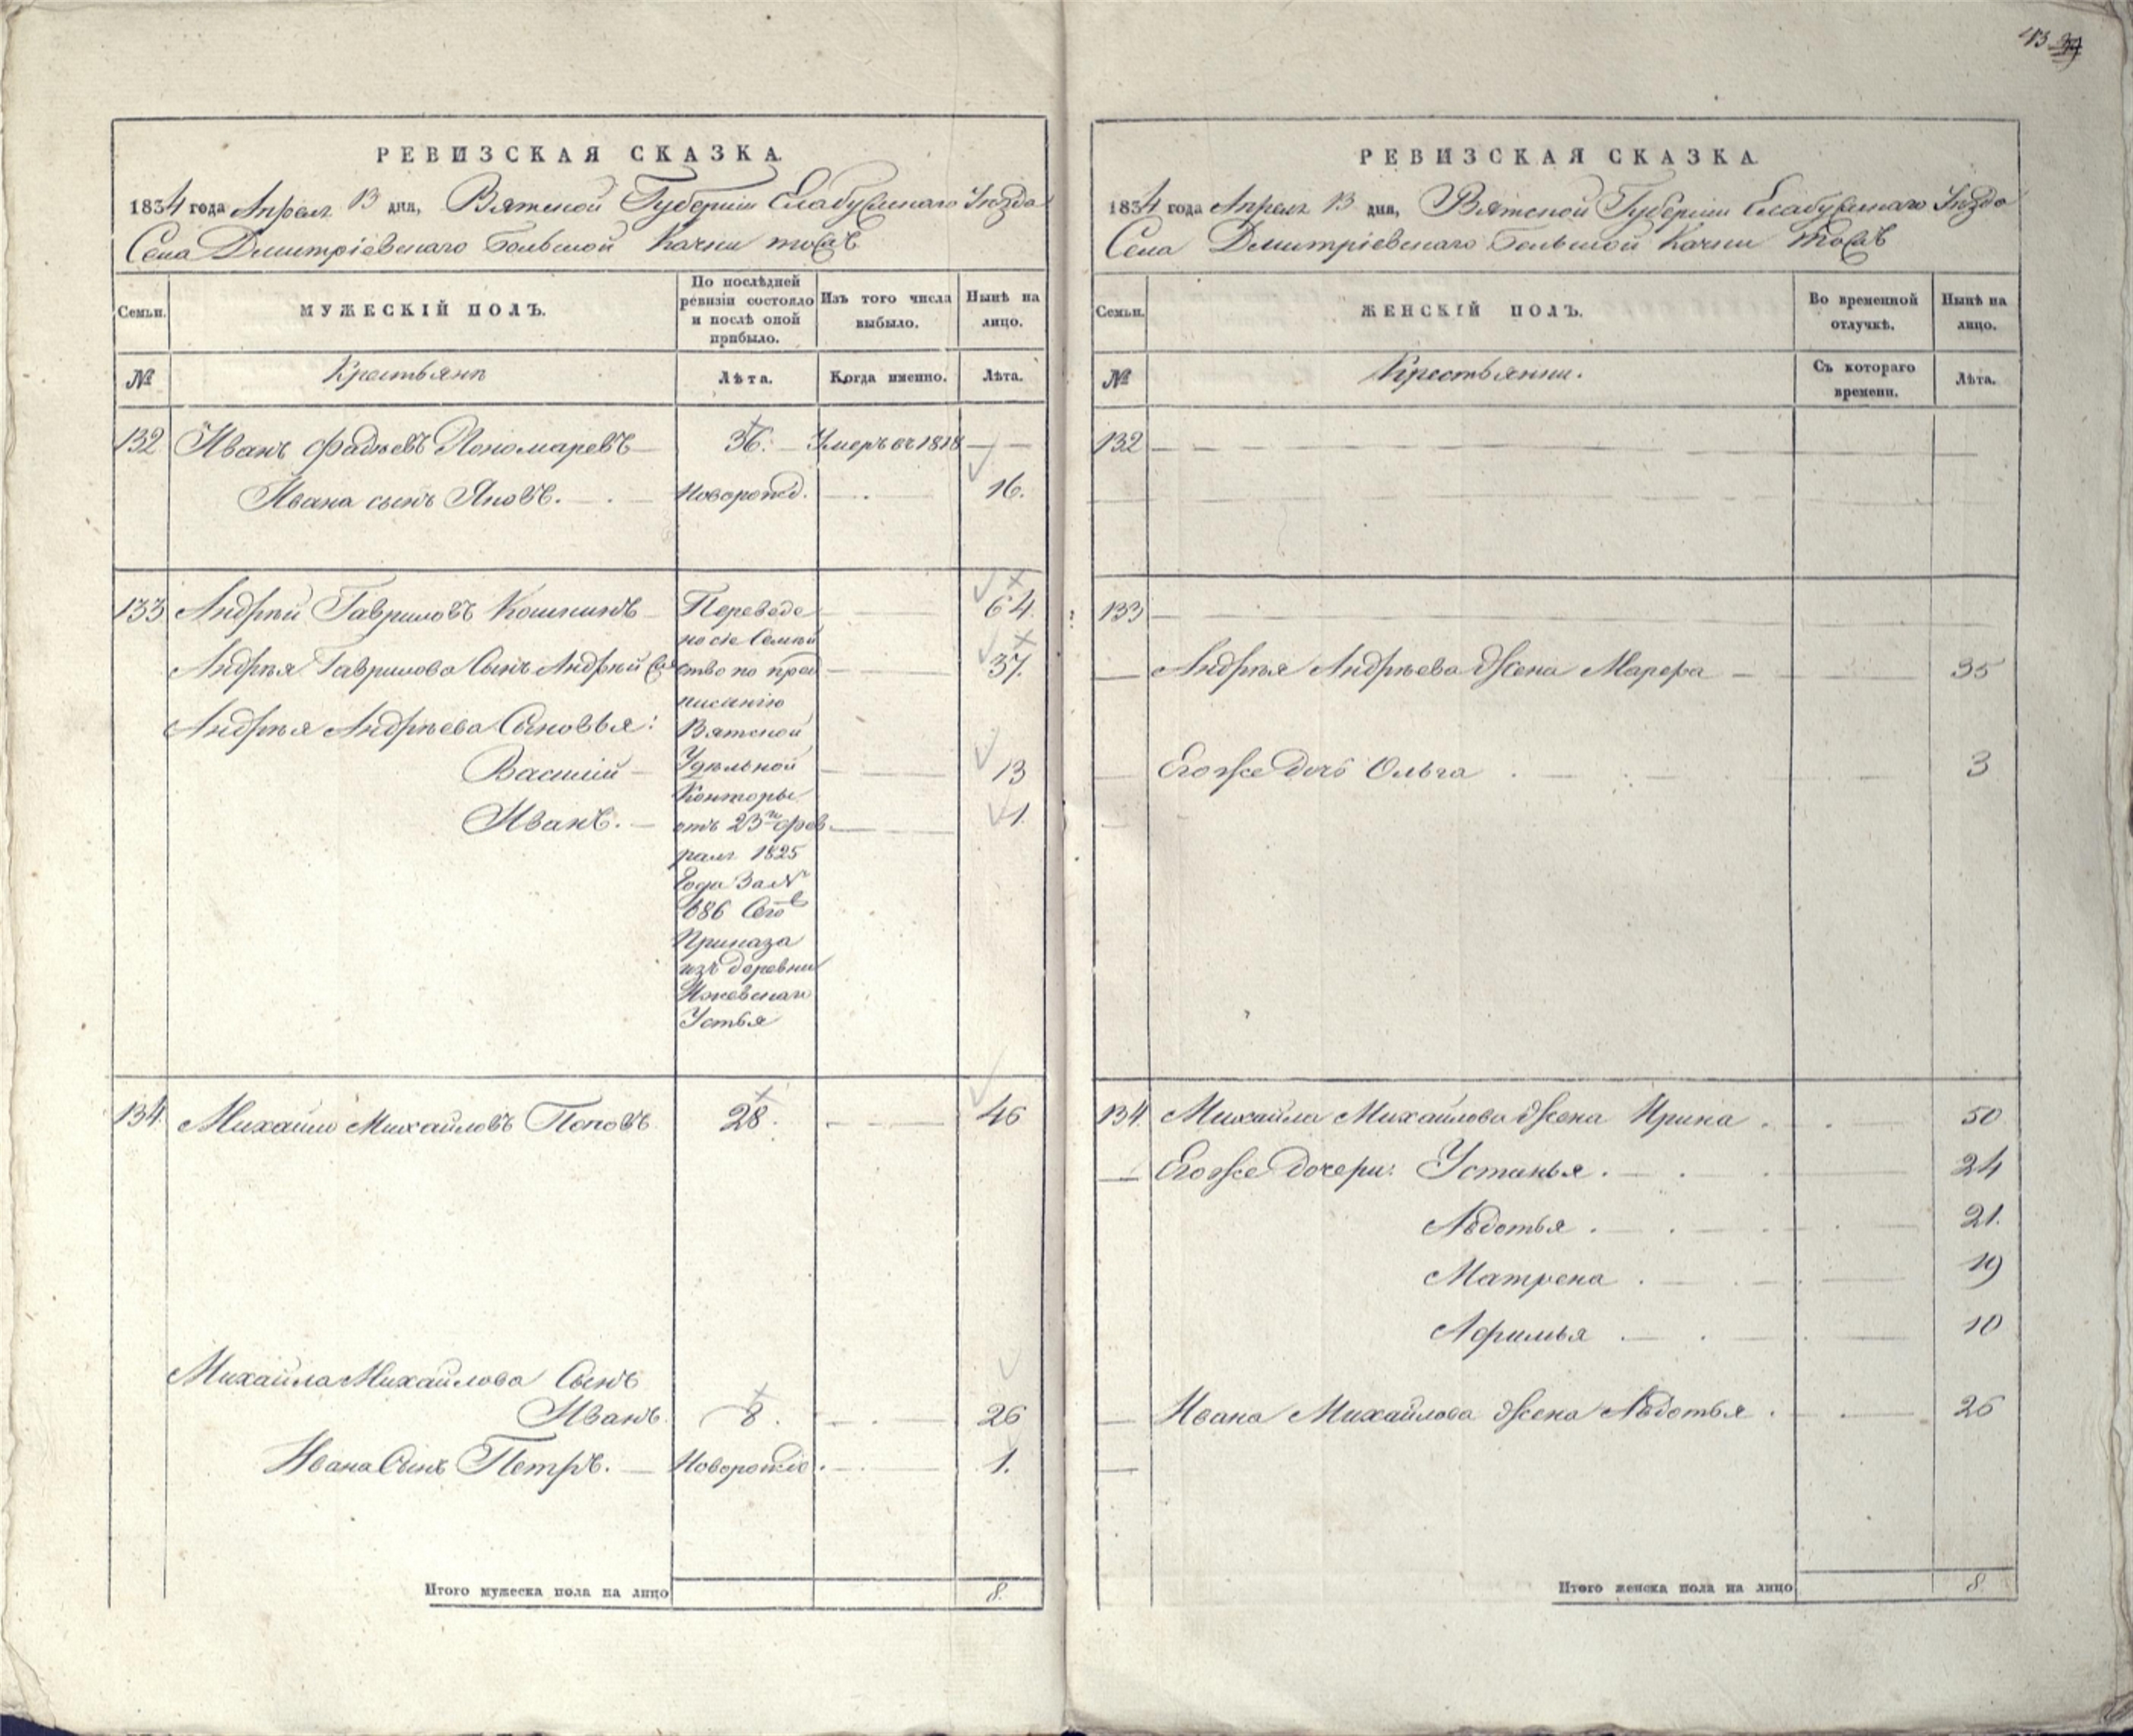 43
РЕВИЗСКАЯ СКАЗКА.
1834 года Апреля 13 дня, Вятской Губерніи Елабужскаго Уѣзда
Села Димитріевскаго Большой Качки тожъ
Семьи.
МУЖЕСКІЙ ПОЛЪ.
По послѣдней ревизіи состояло и послѣ оной прибыло.
Изъ того числа выбыло.
Нынѣ на лицо.
№
Крестьянѣ
Лѣта.
Когда именно.
Лѣта.
132 Иванъ Фадѣевъ Пономаревъ 36. Умеръ въ 1818
Ивана сынъ Яковъ. Новорожд. 16.
133 Андрѣй Гавриловъ Кошкинъ 64.
Андрѣя Гаврилова Сынъ Андрѣй 37.
Андрѣя Андрѣева Сыновья:
Василій 13
Иванъ. 1.
Переведе
но сіе Семѣй
ство по пред
писанію
Вятской
Удѣльной
Конторы
отъ 23го Фев
раля 1825
Года За №
686 Сего
Приказа
изъ деревни
Ижевскаго
Устья
134. Михайло Михайловъ Поповъ 28. 46
Михайла Михайлова Сынъ
Иванъ. 8. 26
Ивана Сынъ Петръ. Новорожде. 1.
Итого мужеска пола на лицо 8.
РЕВИЗСКАЯ СКАЗКА.
1834 года Апреля 13 дня, Вятской Губерніи Елабужскаго Уѣзда
Села Димитріевскаго Большой Качки тожъ
Семьи.
ЖЕНСКІЙ ПОЛЪ.
Во временной отлучкѣ.
Нынѣ на лицо.
№
Крестьянки.
Съ котораго времени.
Лѣта.
132
133
Андрѣя Андрѣева Жена Марфа 35
Его же дочь Ольга 3
134. Михайла Михайлова Жена Ирина 50
Его же дочери: Устинья. 24
Авдотья. 21.
Матрена. 19
Афимья 10
Ивана Михайлова Жена Авдотья. 26
Итого женска пола на лицо 8